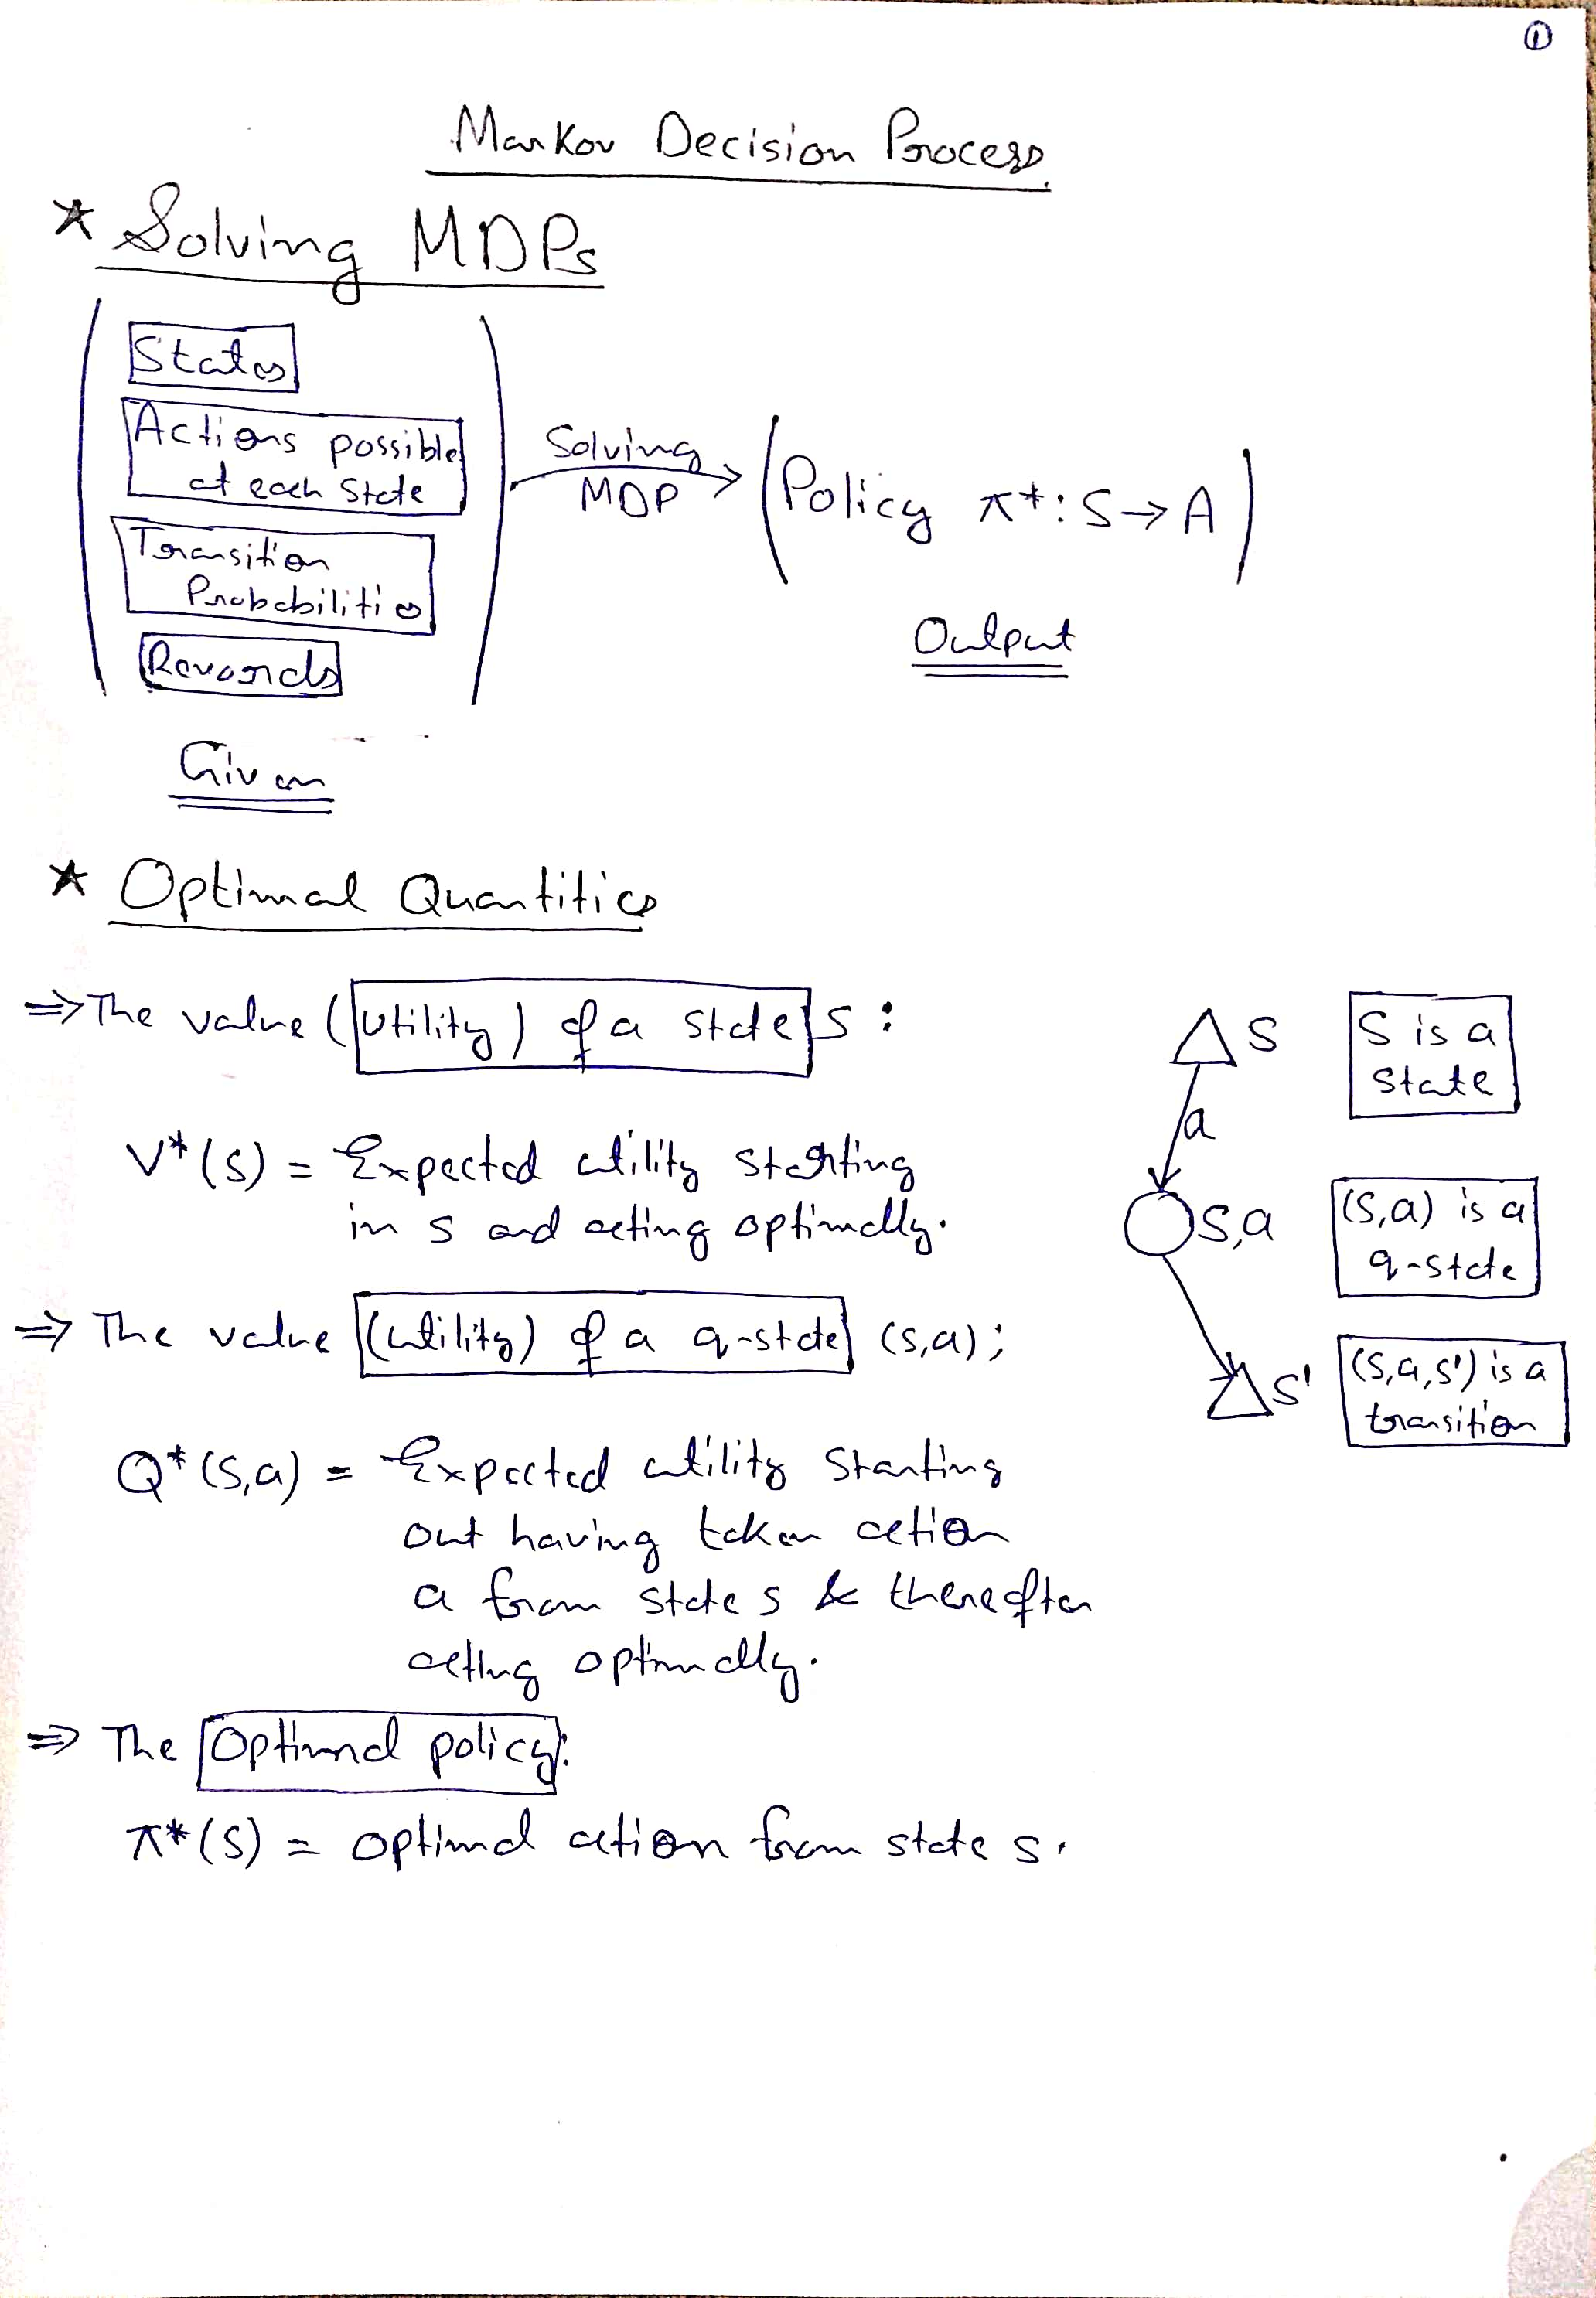 ①
Markov Decision Process
* Solving MDPs
States
Actions possible
at each state
Transition
Probabilities
Rewards
Given
Solving
MDP
(Policy π*: S→A)
Output
* Optimal Quantities
⇒ The value (utility) of a state s:
V*(s) = Expected utility starting
in s and acting optimally.
⇒ The value (utility) of a q-state (s,a);
Q*(s,a) = Expected utility starting
out having taken action
a from state s & thereafter
acting optimally.
S
a
s,a
s'
S is a
state
(s,a) is a
q-state
(s,a,s') is a
transition
⇒ The Optimal policy:
π*(s) = optimal action from state s.